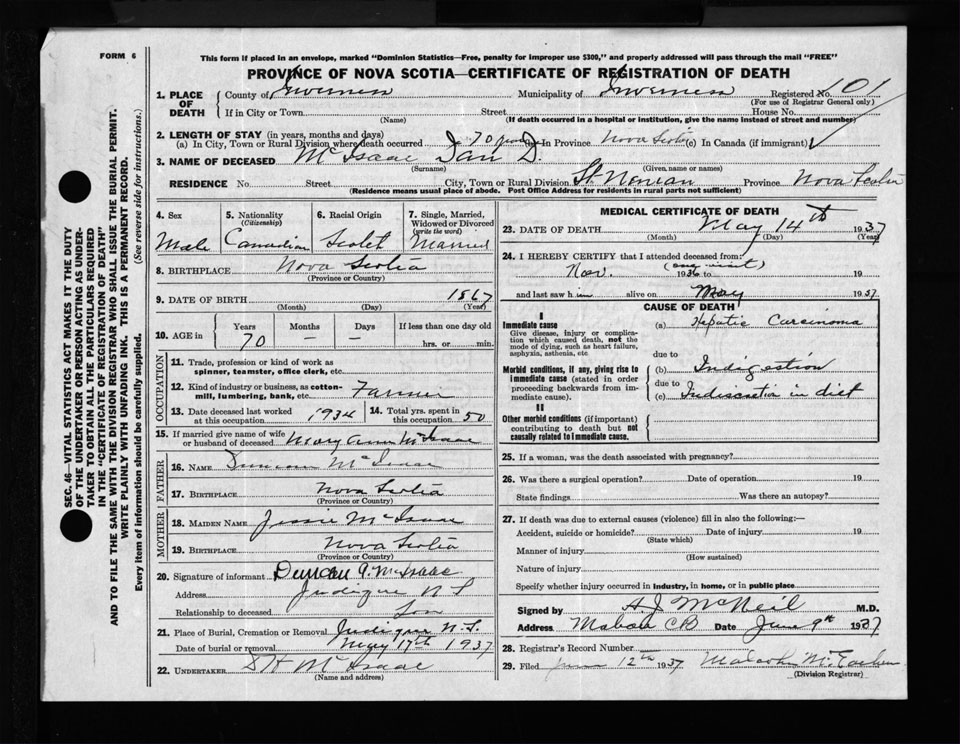 FORM 6
This form if placed in an envelope, marked "Dominion Statistics—Free, penalty for improper use $300," and properly addressed will pass through the mail "FREE"
PROVINCE OF NOVA SCOTIA—CERTIFICATE OF REGISTRATION OF DEATH
1. PLACE OF DEATH
County of Inverness Municipality of Inverness Registered No. 101
(For use of Registrar General only)
If in City or Town Street House No.
(Name) (If death occurred in a hospital or institution, give the name instead of street and number)
2. LENGTH OF STAY (in years, months and days)
(a) In City, Town or Rural Division where death occurred 70 years (b) In Province Nova Scotia (c) In Canada (if immigrant)
3. NAME OF DECEASED McIsaac Dan D.
(Surname) (Given name or names)
RESIDENCE No. Street City, Town or Rural Division Province Nova Scotia
(Residence means usual place of abode. Post Office Address for residents in rural parts not sufficient)
4. Sex
Male
5. Nationality
(Citizenship)
Canadian
6. Racial Origin
Scotch
7. Single, Married, Widowed or Divorced
(write the word)
Married
8. BIRTHPLACE Nova Scotia
(Province or Country)
9. DATE OF BIRTH 1867
(Month) (Day) (Year)
10. AGE in
Years Months Days If less than one day old
70 — — hrs. or min.
OCCUPATION
11. Trade, profession or kind of work as
spinner, teamster, office clerk, etc.
12. Kind of industry or business, as cotton-
mill, lumbering, bank, etc. Farmer
13. Date deceased last worked
at this occupation 1934
14. Total yrs. spent in
this occupation 50
15. If married give name of wife
or husband of deceased Mary Ann McIsaac
FATHER
16. NAME Duncan McIsaac
17. BIRTHPLACE Nova Scotia
(Province or Country)
MOTHER
18. MAIDEN NAME Jessie McIsaac
19. BIRTHPLACE Nova Scotia
(Province or Country)
20. Signature of informant Duncan A. McIsaac
Address Judique N S
Relationship to deceased Son
21. Place of Burial, Cremation or Removal Judique N.S.
Date of burial or removal May 17th 1937
22. UNDERTAKER McIsaac
(Name and address)
MEDICAL CERTIFICATE OF DEATH
23. DATE OF DEATH May 14th 1937
(Month) (Day) (Year)
24. I HEREBY CERTIFY that I attended deceased from:
(one visit)
Nov. 1936 to 19
and last saw him alive on May 1937
CAUSE OF DEATH
I
Immediate cause
Give disease, injury or complica-
tion which caused death, not the
mode of dying, such as heart failure,
asphyxia, asthenia, etc
(a) Hepatic Carcinoma
due to
Morbid conditions, if any, giving rise to
immediate cause (stated in order
proceeding backwards from im-
mediate cause).
(b) Indigestion
due to
(c) Indiscretion in diet
II
Other morbid conditions (if important)
contributing to death but not
causally related to immediate cause.
25. If a woman, was the death associated with pregnancy?
26. Was there a surgical operation? Date of operation 19
State findings Was there an autopsy?
27. If death was due to external causes (violence) fill in also the following:—
Accident, suicide or homicide? Date of injury 19
(State which)
Manner of injury
(How sustained)
Nature of injury
Specify whether injury occurred in industry, in home, or in public place
Signed by A J McNeil M.D.
Address Mabou CB Date June 9th 1937
28. Registrar's Record Number
29. Filed June 12th 1937 Malcolm McEachen
(Division Registrar)
SEC. 46—VITAL STATISTICS ACT MAKES IT THE DUTY
OF THE UNDERTAKER OR PERSON ACTING AS UNDER-
TAKER TO OBTAIN ALL THE PARTICULARS REQUIRED
IN THE "CERTIFICATE OF REGISTRATION OF DEATH"
AND TO FILE THE SAME WITH THE DIVISION REGISTRAR WHO SHALL ISSUE THE BURIAL PERMIT.
WRITE PLAINLY WITH UNFADING INK. THIS IS A PERMANENT RECORD.
Every item of information should be carefully supplied. (See reverse side for instructions.)